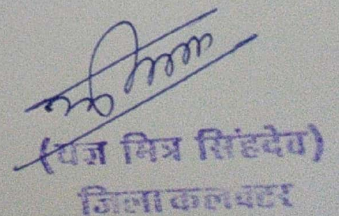 (यज्ञ मित्र सिंहदेव)
जिला कलक्टर